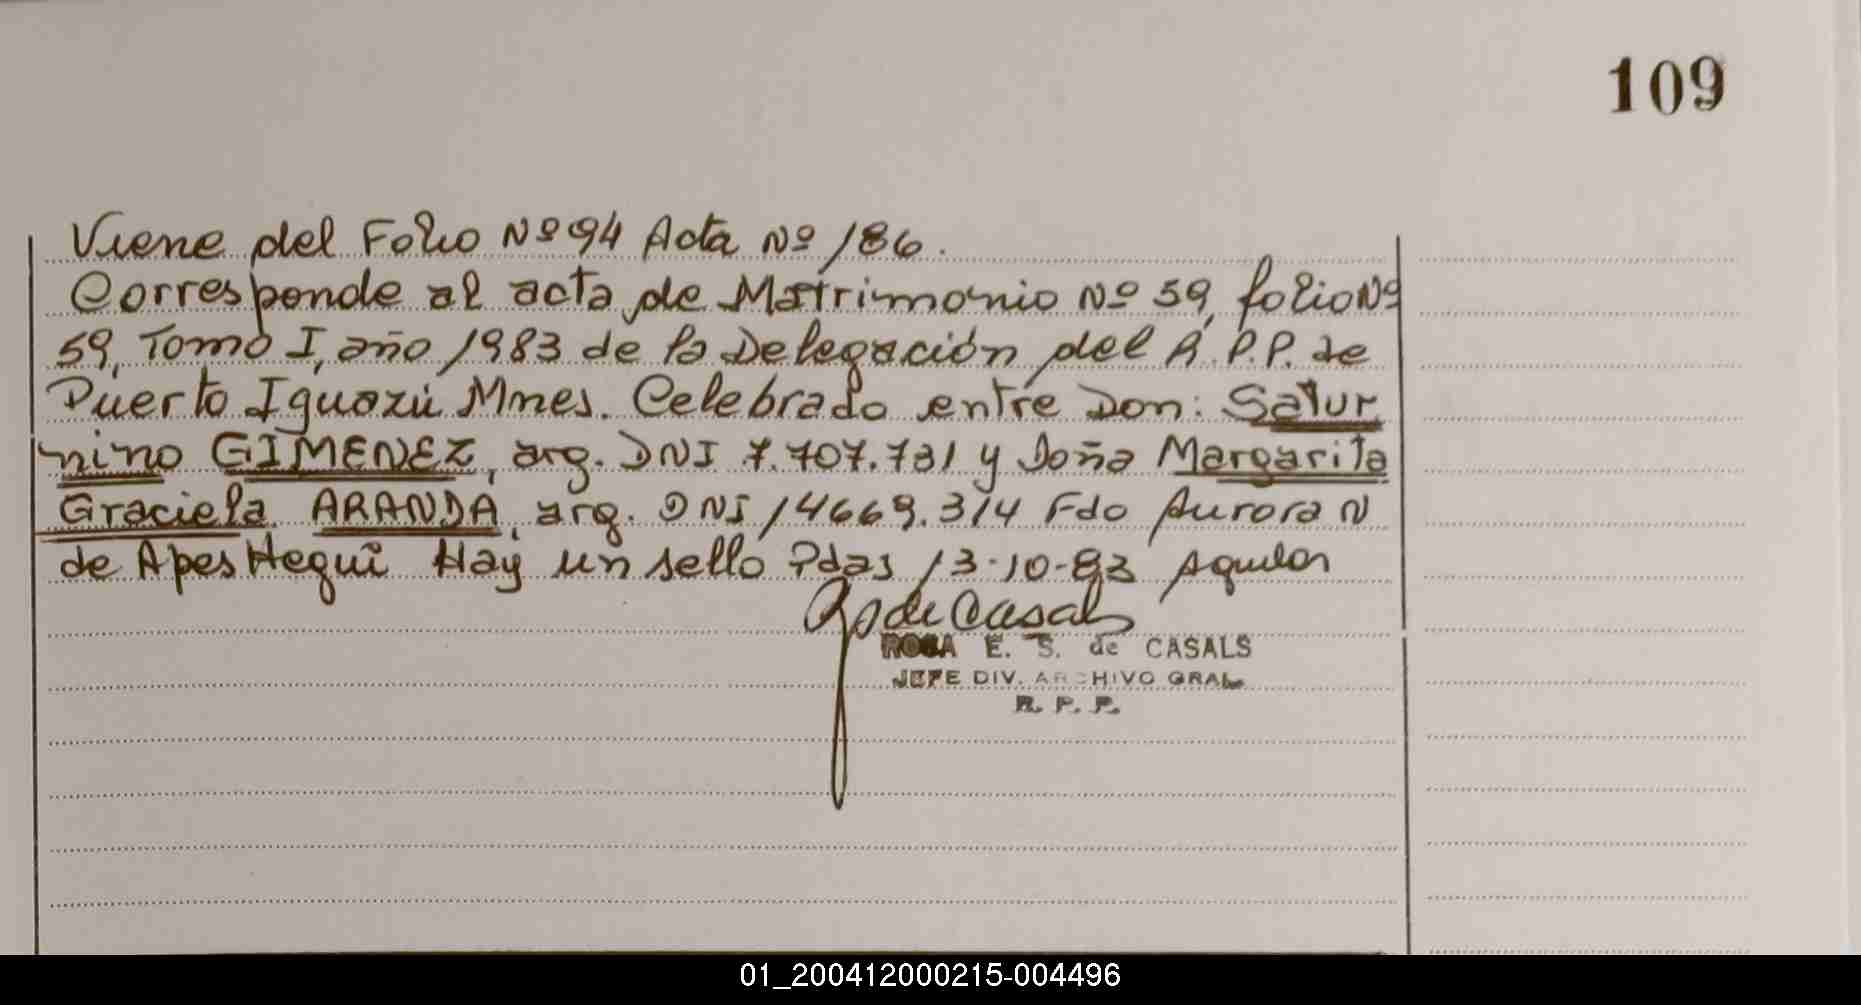 109
Viene del Folio Nº 94 Acta Nº 186.
Corresponde al acta de Matrimonio Nº 59, folio Nº
59, Tomo I, año 1983 de la Delegación del R.P.P. de
Puerto Iguazú Mnes. Celebrado entre Don: Satur
nino GIMENEZ, arg. DNI 7.707.731 y Doña Margarita
Graciela ARANDA, arg. DNI 14669.314 Fdo Aurora N
de Apesteguí Hay un sello Pdas 13-10-83 Aguilar
de Casals
ROSA E. S. de CASALS
JEFE DIV. ARCHIVO GRAL.
R. P. P.
01_200412000215-004496